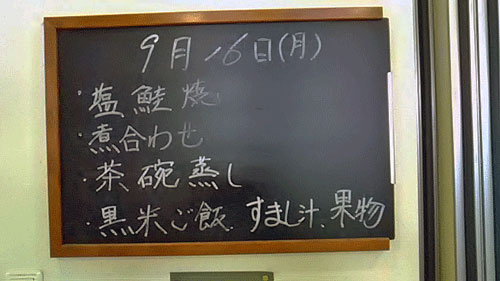 9月16日(月)
・塩鮭焼
・煮合わせ
・茶碗蒸し
・黒米ご飯、すまし汁、果物